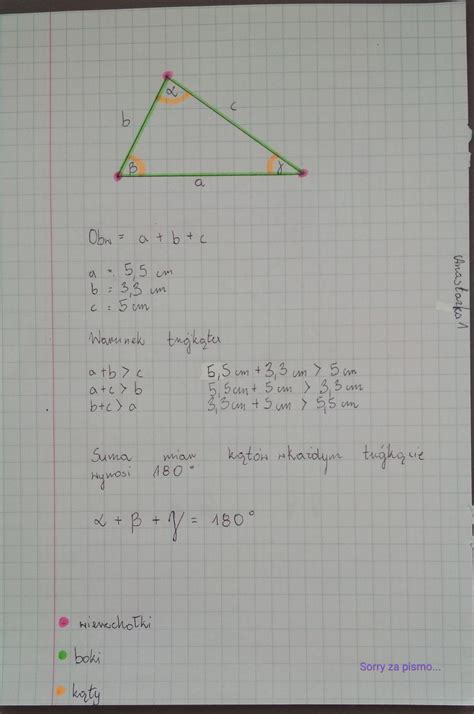 α
b
c
β
γ
a
Obw = a + b + c
a = 5,5 cm
b = 3,3 cm
c = 5 cm
Warunek trójkąta
a+b > c 5,5 cm + 3,3 cm > 5 cm
a+c > b 5,5 cm + 5 cm > 3,3 cm
b+c > a 3,3 cm + 5 cm > 5,5 cm
Suma miar kątów w każdym trójkącie
wynosi 180°
α + β + γ = 180°
wierzchołki
boki
kąty
Sorry za pismo...